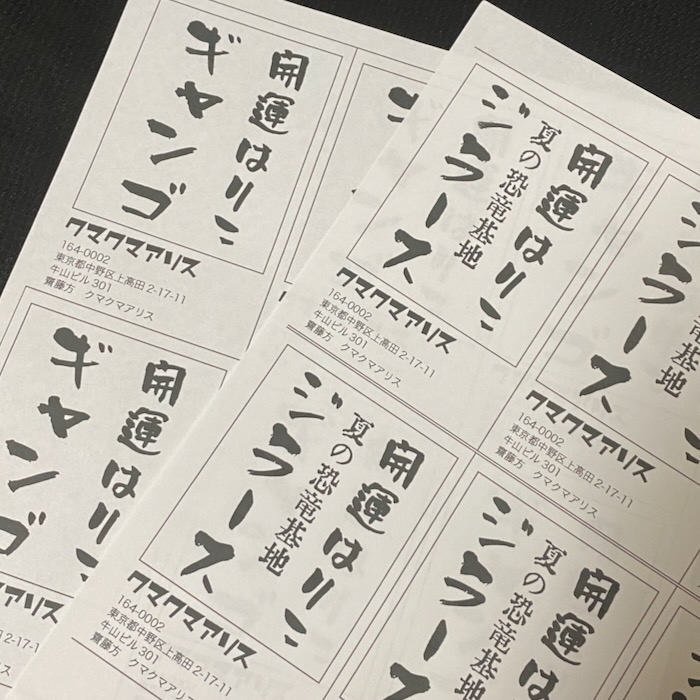 開運はりこ
ギャンゴ
クマクマアリス
164-0002
東京都中野区上高田 2-17-11
牛山ビル 301
齋藤方 クマクマアリス
開運はりこ
ギャンゴ
開運はりこ
夏の恐竜基地
ジラース
クマクマアリス
164-0002
東京都中野区上高田 2-17-11
牛山ビル 301
齋藤方 クマクマアリス
恐竜基地
ジラース
クマクマアリス
164-0002
東京都中野区上高田 2-17-11
牛山ビル 301
齋藤方 クマクマアリス
開運はりこ
夏の恐竜基地
ジラース
クマクマアリス
164-0002
東京都中野区上高田 2-17-11
牛山ビル 301
齋藤方 クマクマアリス
開運は
夏の恐竜基地
ジラー